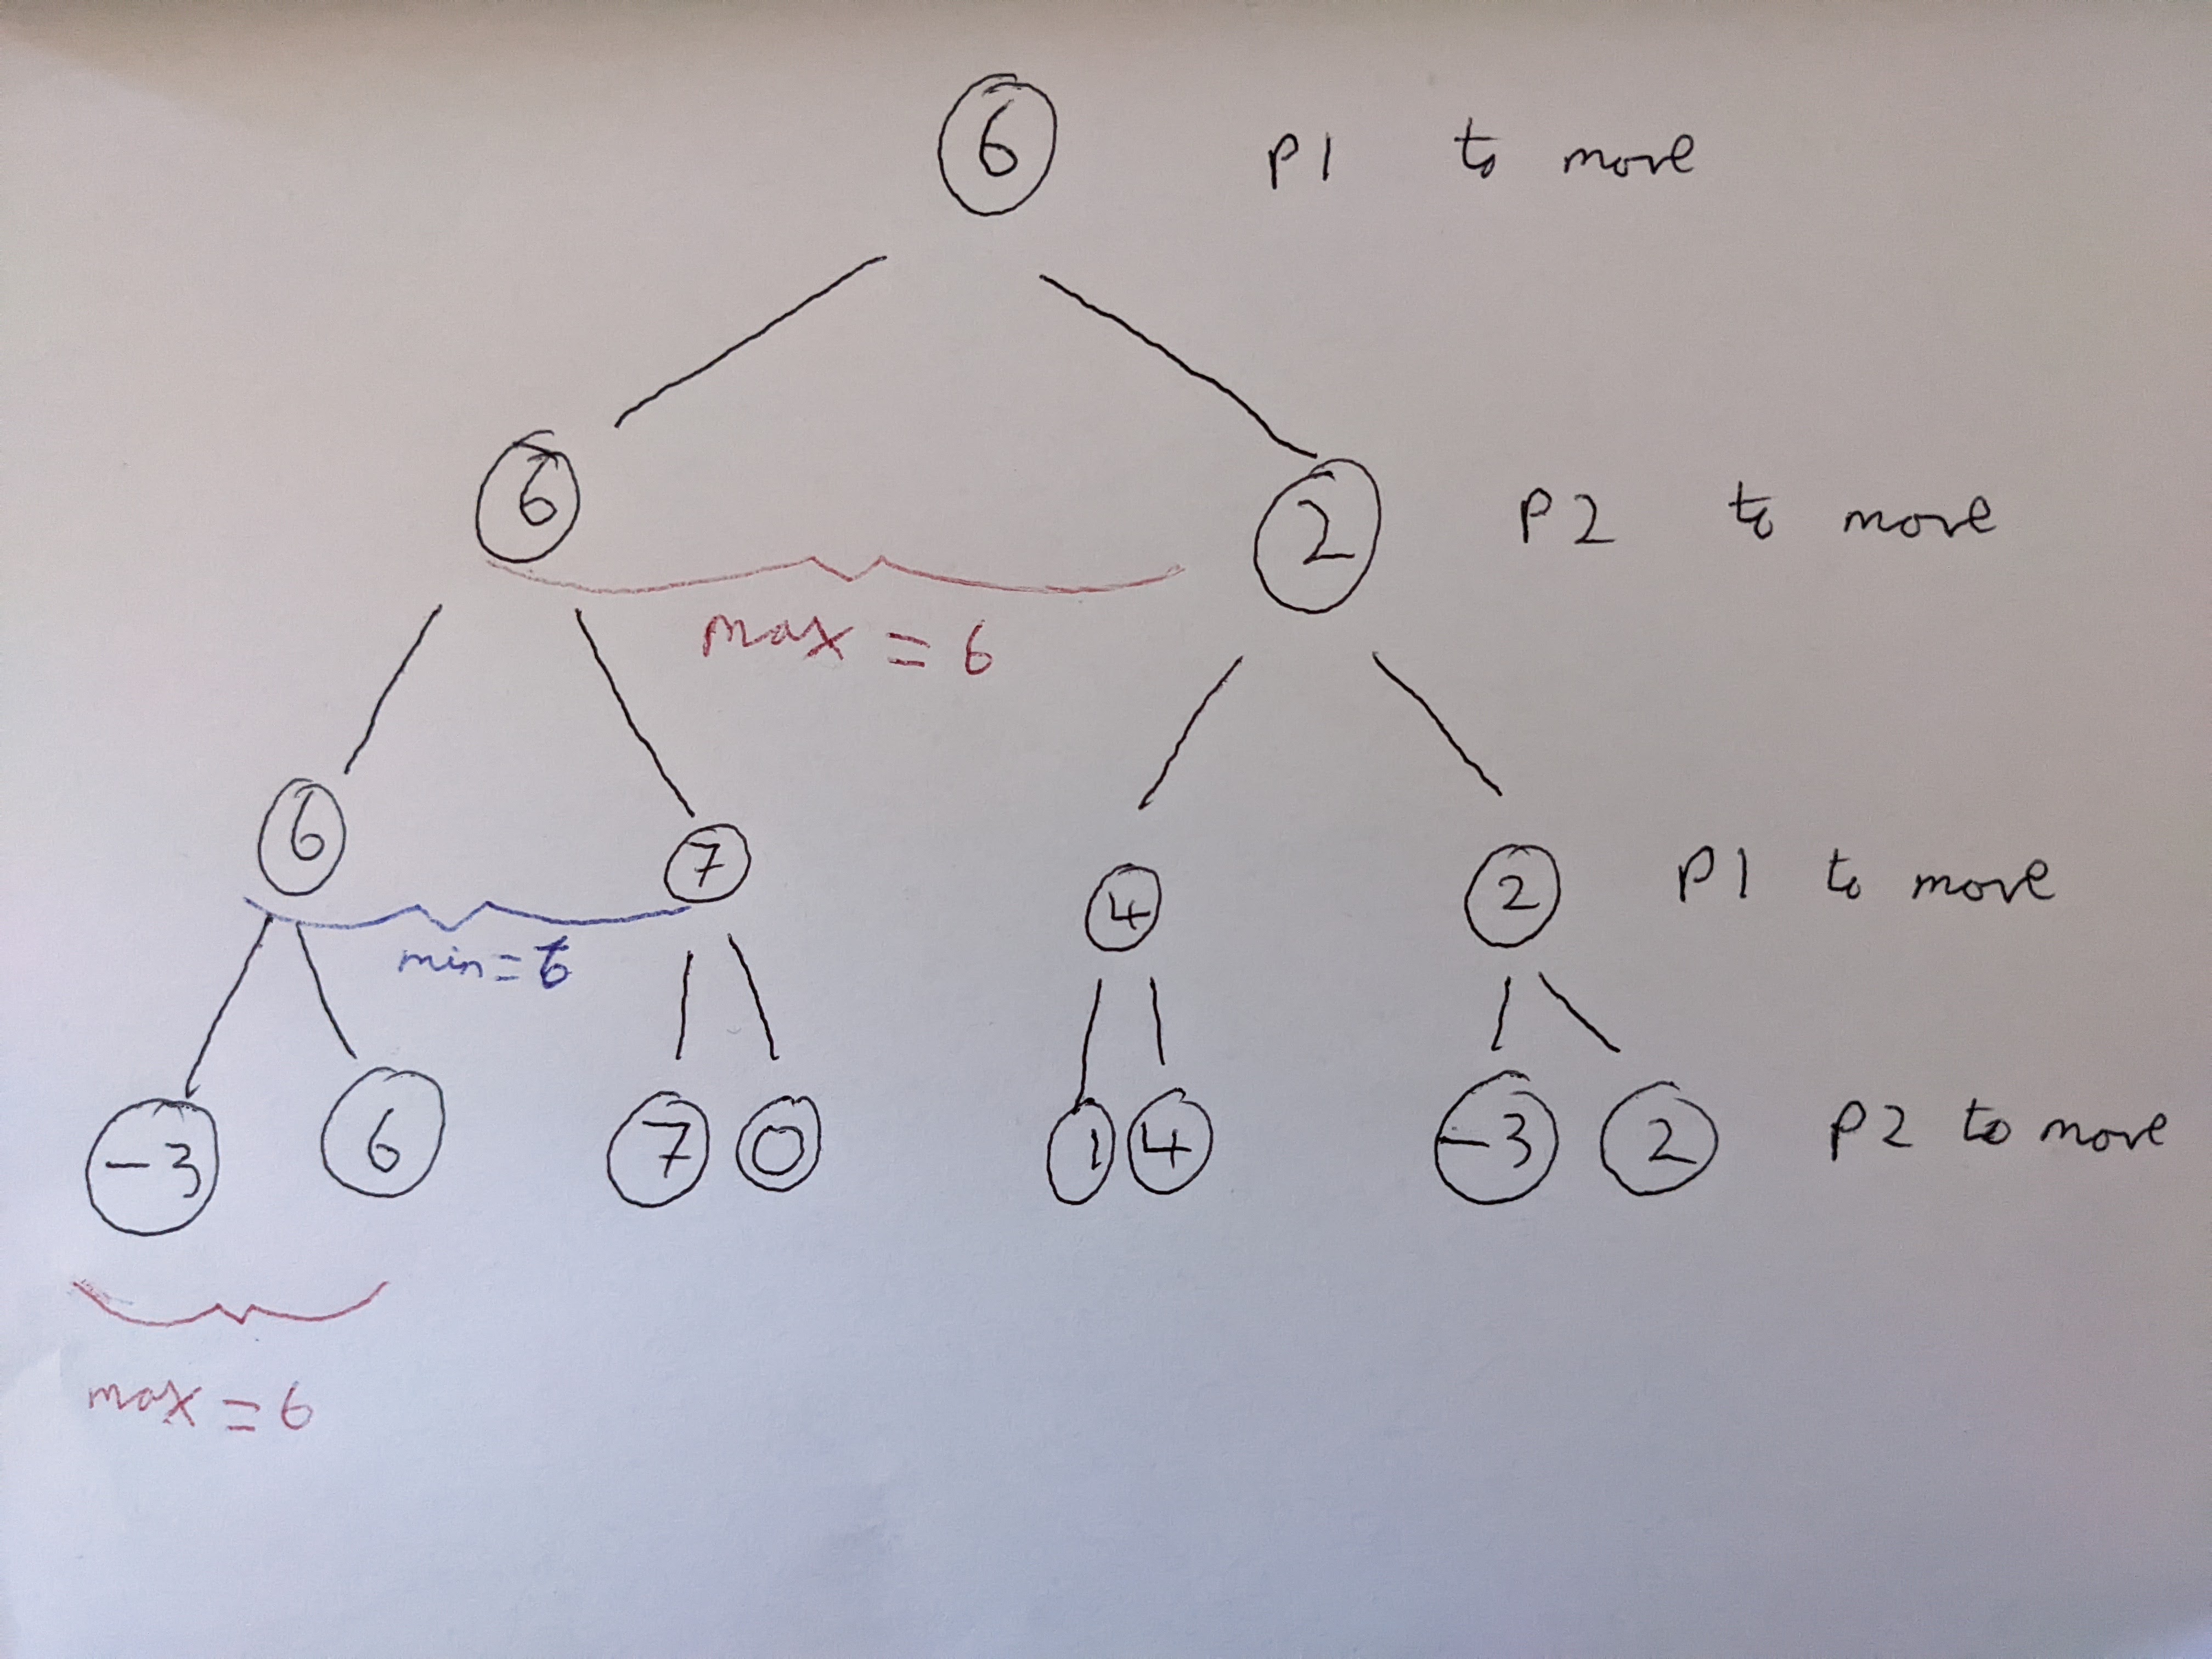 6 P1 to move
6 2 P2 to move
max = 6
6 7 4 2 P1 to move
min = 6
-3 6 7 0 1 4 -3 2 P2 to move
max = 6